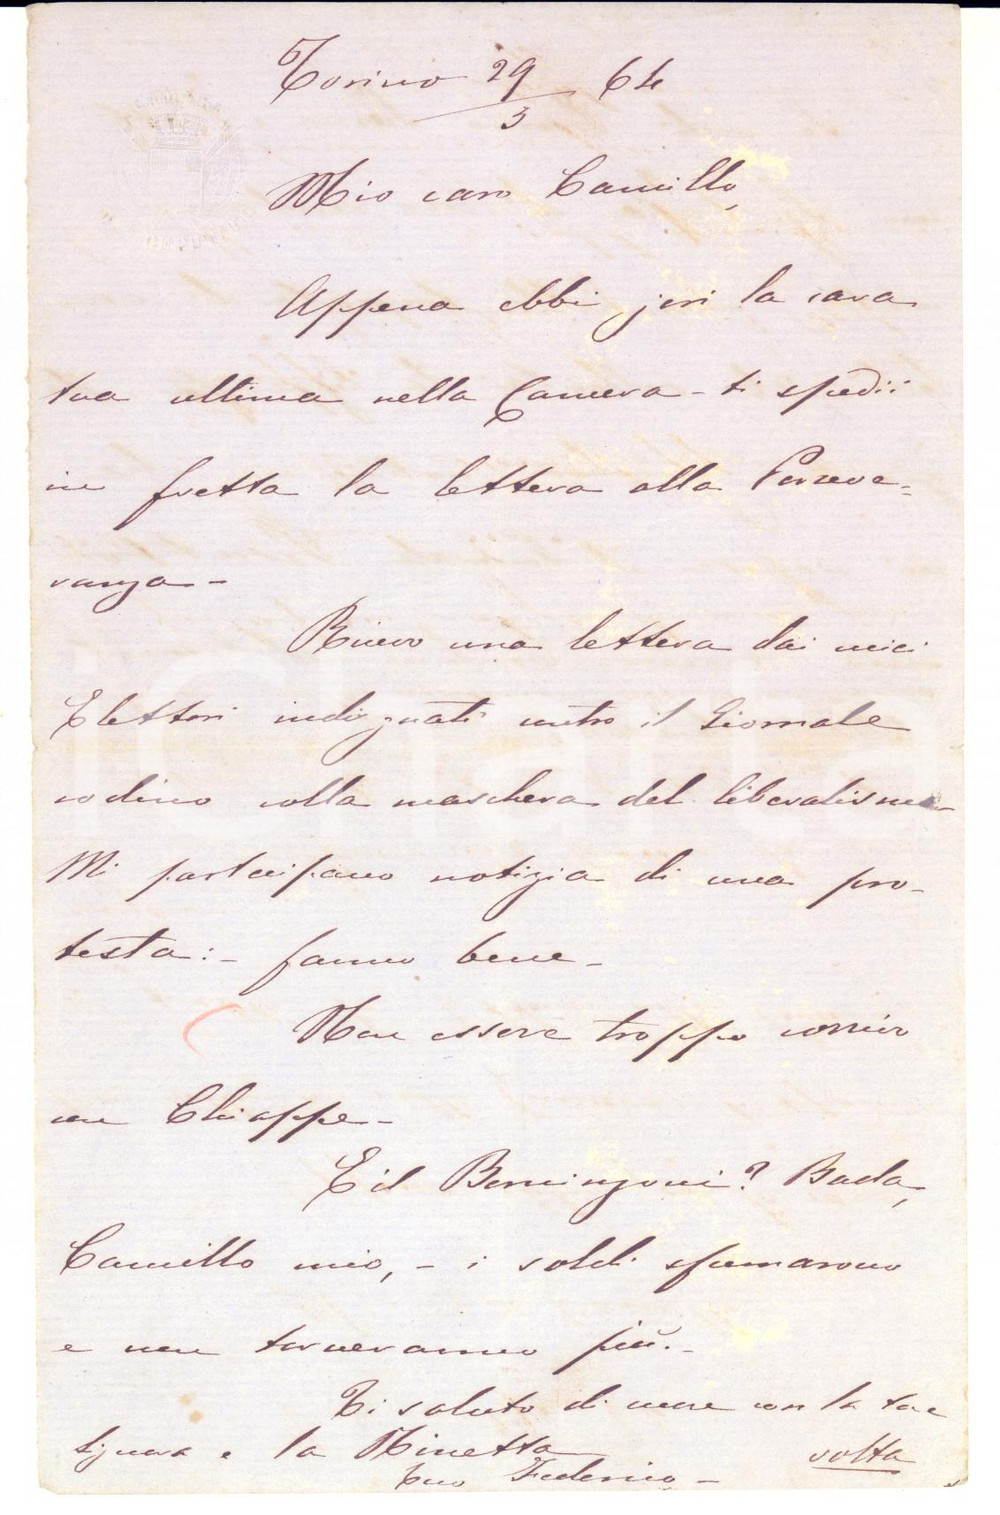 Torino 29/3 64
Mio caro Camillo,
Appena ebbi jeri la cara
tua ultima nella Camera - ti spedii
in fretta la lettera alla Perseve=
ranza -
Ricevo una lettera dai miei
Elettori indignati contro il Giornale
codino colla maschera del liberalismo
Mi partecipano notizia di una pro-
testa: - fanno bene -
Non essere troppo corrivo
con Chiappe -
E il Bominzoni? Bada,
Camillo mio, - i soldi sfumarono
e non torneranno più. -
Ti saluto di cuore con la tua
Signora e la Ninetta
tuo Federico -
volta